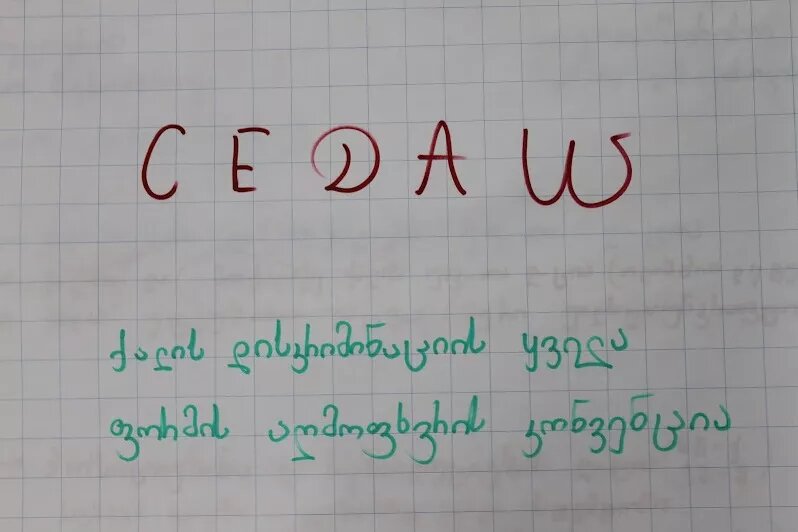 C E D A W
ქალის დისკრიმინაციის ყველა
ფორმის აღმოფხვრის კონვენცია